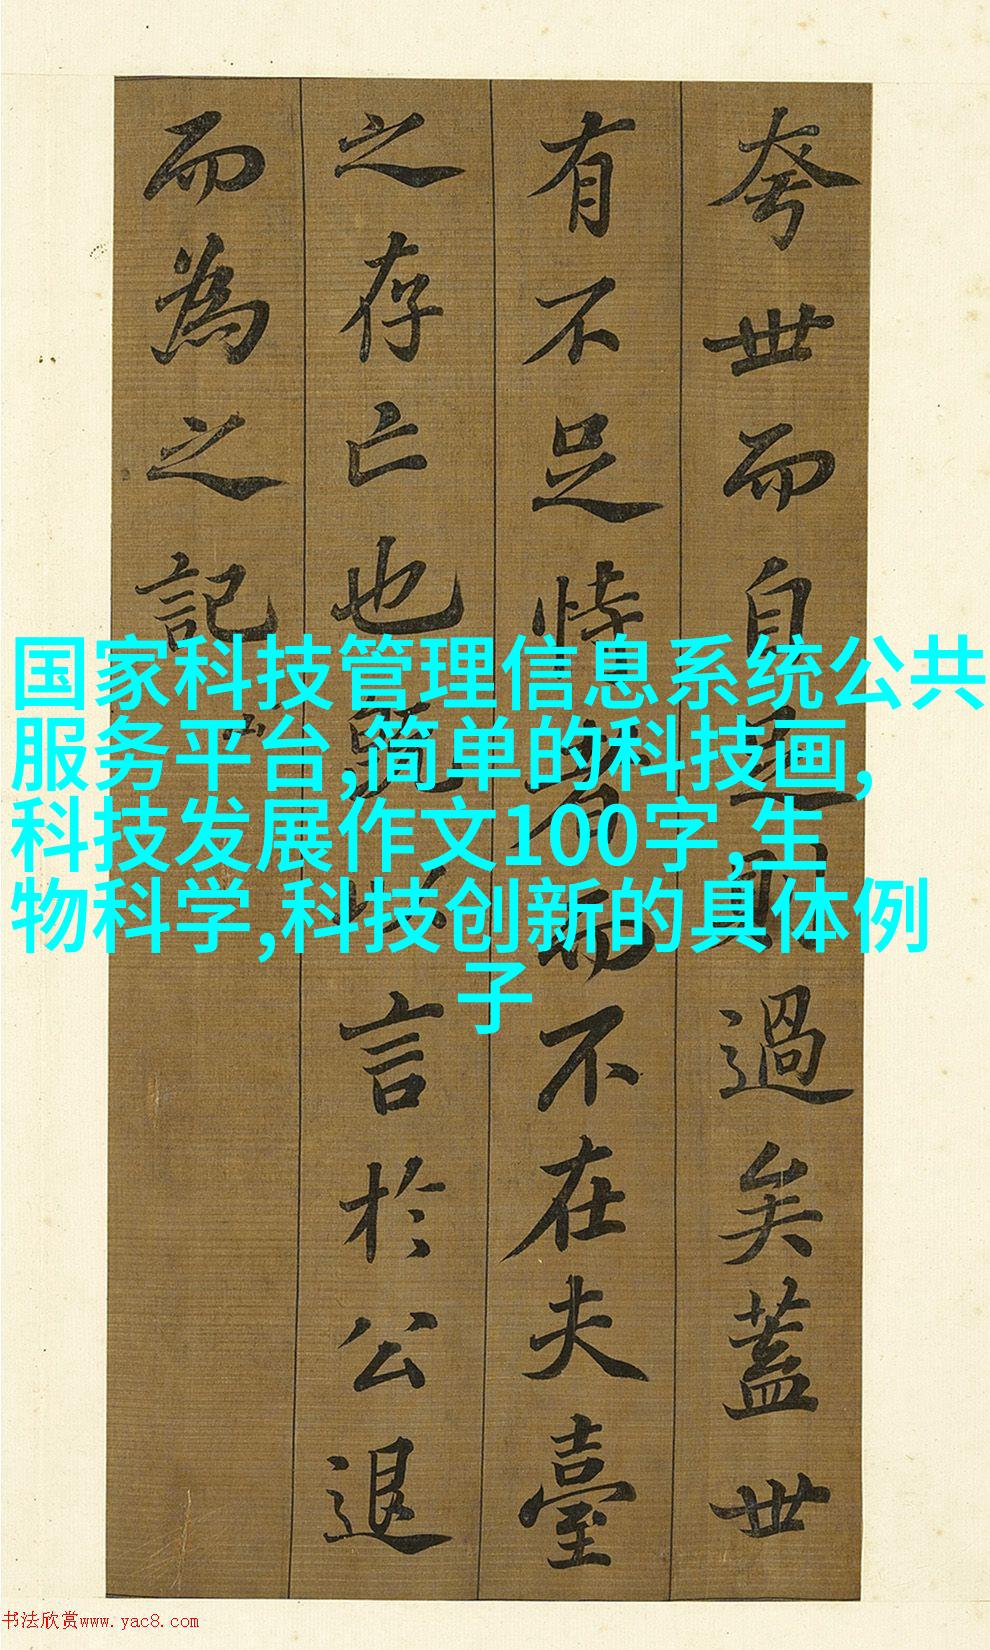 夸世而自足則過矣蓋世
有不足恃者而不在夫臺
之存亡也既以言於公退
而為之記
国家科技管理信息系统公共
服务平台,简单的科技画,
科技发展作文100字,生
物科学,科技创新的具体例
子
书法欣赏www.yac8.com